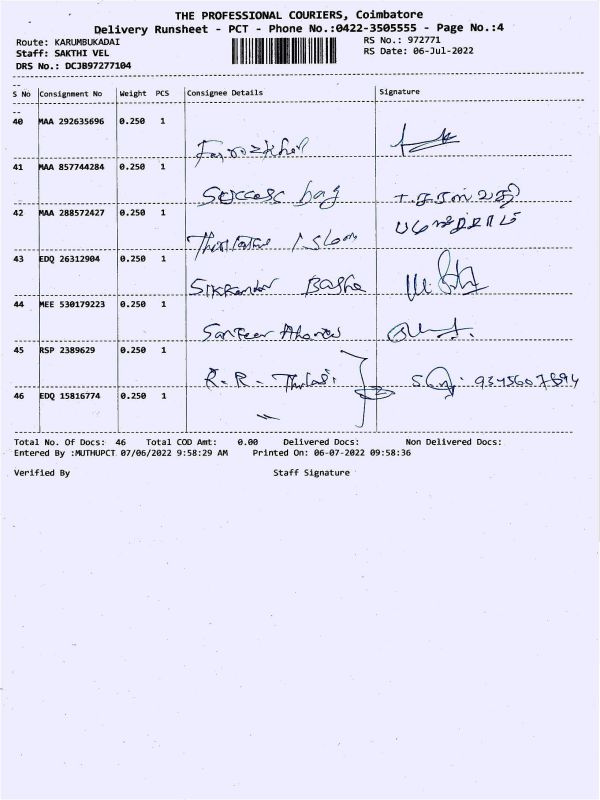 THE PROFESSIONAL COURIERS, Coimbatore
Delivery Runsheet - PCT - Phone No.:0422-3505555 - Page No.:4
Route: KARUMBUKADAI RS No.: 972771
Staff: SAKTHI VEL RS Date: 06-Jul-2022
DRS No.: DCJB97277104
S No Consignment No Weight PCS Consignee Details Signature
40 MAA 292635696 0.250 1
41 MAA 857744284 0.250 1
Success bag
42 MAA 288572427 0.250 1
Islam
43 EDQ 26312904 0.250 1
Sikkandar Basha
44 MEE 530179223 0.250 1
45 RSP 2389629 0.250 1
R. R. Thulasi
46 EDQ 15816774 0.250 1
Total No. Of Docs: 46 Total COD Amt: 0.00 Delivered Docs: Non Delivered Docs:
Entered By :MUTHUPCT 07/06/2022 9:58:29 AM Printed On: 06-07-2022 09:58:36
Verified By Staff Signature